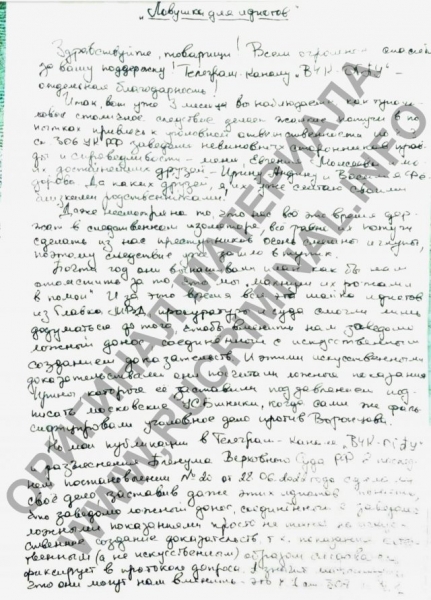 "Ловушка для идиотов"
Здравствуйте, товарищи! Всем огромное спасибо
за вашу поддержку! Телеграм-каналу "ВЧК-ОГПУ" -
отдельная благодарность!
Итак, вот уже 3 месяца вы наблюдаете, как
столичное следствие делает жалкие потуги в по
пытках привлечь к уголовной ответственности по
ст. 306 УК РФ заведомо невиновных сторонников прав
ды и справедливости - меня, Евгения Моисеева и мо
их достойнейших друзей - Ирину и Василия
Да каких друзей, я их уже считаю своими
близкими родственниками!
Даже несмотря на то, что нас всё это время дер
жат в следственном изоляторе всё равно потуги
сделать из нас преступников очень смешны и глупы,
поэтому следствие уже зашло в тупик.
Почти год они думали как бы нам
отомстить за то, что мы макнули их рожами
в помои. И за это время вся эта шайка идиотов
из Главка МВД, прокуратуры, суда смогли лишь
додуматься до того, чтобы вменить нам заведомо
ложный донос, соединенный с искусственным
созданием доказательств. И этими искусственными
доказательствами они посчитали ложные показания
Ирины, которые её заставили под давлением под
писать московские УСБшники, когда сами же фаль
сифицировали уголовное дело против
Но мои публикации в Телеграм-канале "ВЧК-ОГПУ"
и разъяснения Пленума Верховного Суда РФ в
постановлении № 20 от 28.06.2022 года сделали
своё дело, заставив даже этих идиотов понять,
что заведомо ложный донос, соединенный с заведомо
ложными показаниями просто не
создание доказательств т.к. показания
(а не искусственным) образом
фиксирует в протоколе допроса. А значит
что они могут нам вменить - это ч. 1 ст. 306
ОРИГИНАЛ МАТЕРИАЛА:
WWW.RUCRIMINAL.INFO